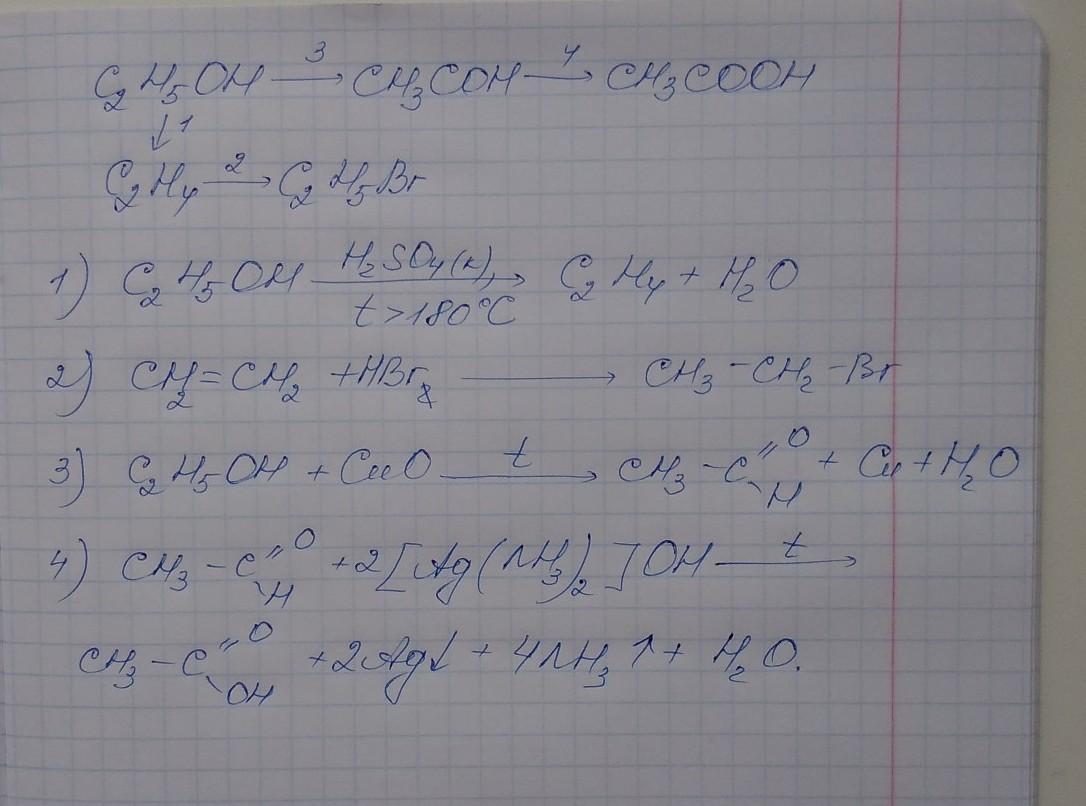 C₂H₅OH —3→ CH₃COH —4→ CH₃COOH
↓1
C₂H₄ —2→ C₂H₅Br
1) C₂H₅OH —H₂SO₄(к), t>180°C→ C₂H₄ + H₂O
2) CH₂=CH₂ + HBr ⟶ CH₃-CH₂-Br
3) C₂H₅OH + CuO —t→ CH₃-C=O H + Cu + H₂O
4) CH₃-C=O H + 2[Ag(NH₃)₂]OH —t→
CH₃-C=O OH + 2Ag↓ + 4NH₃↑ + H₂O.